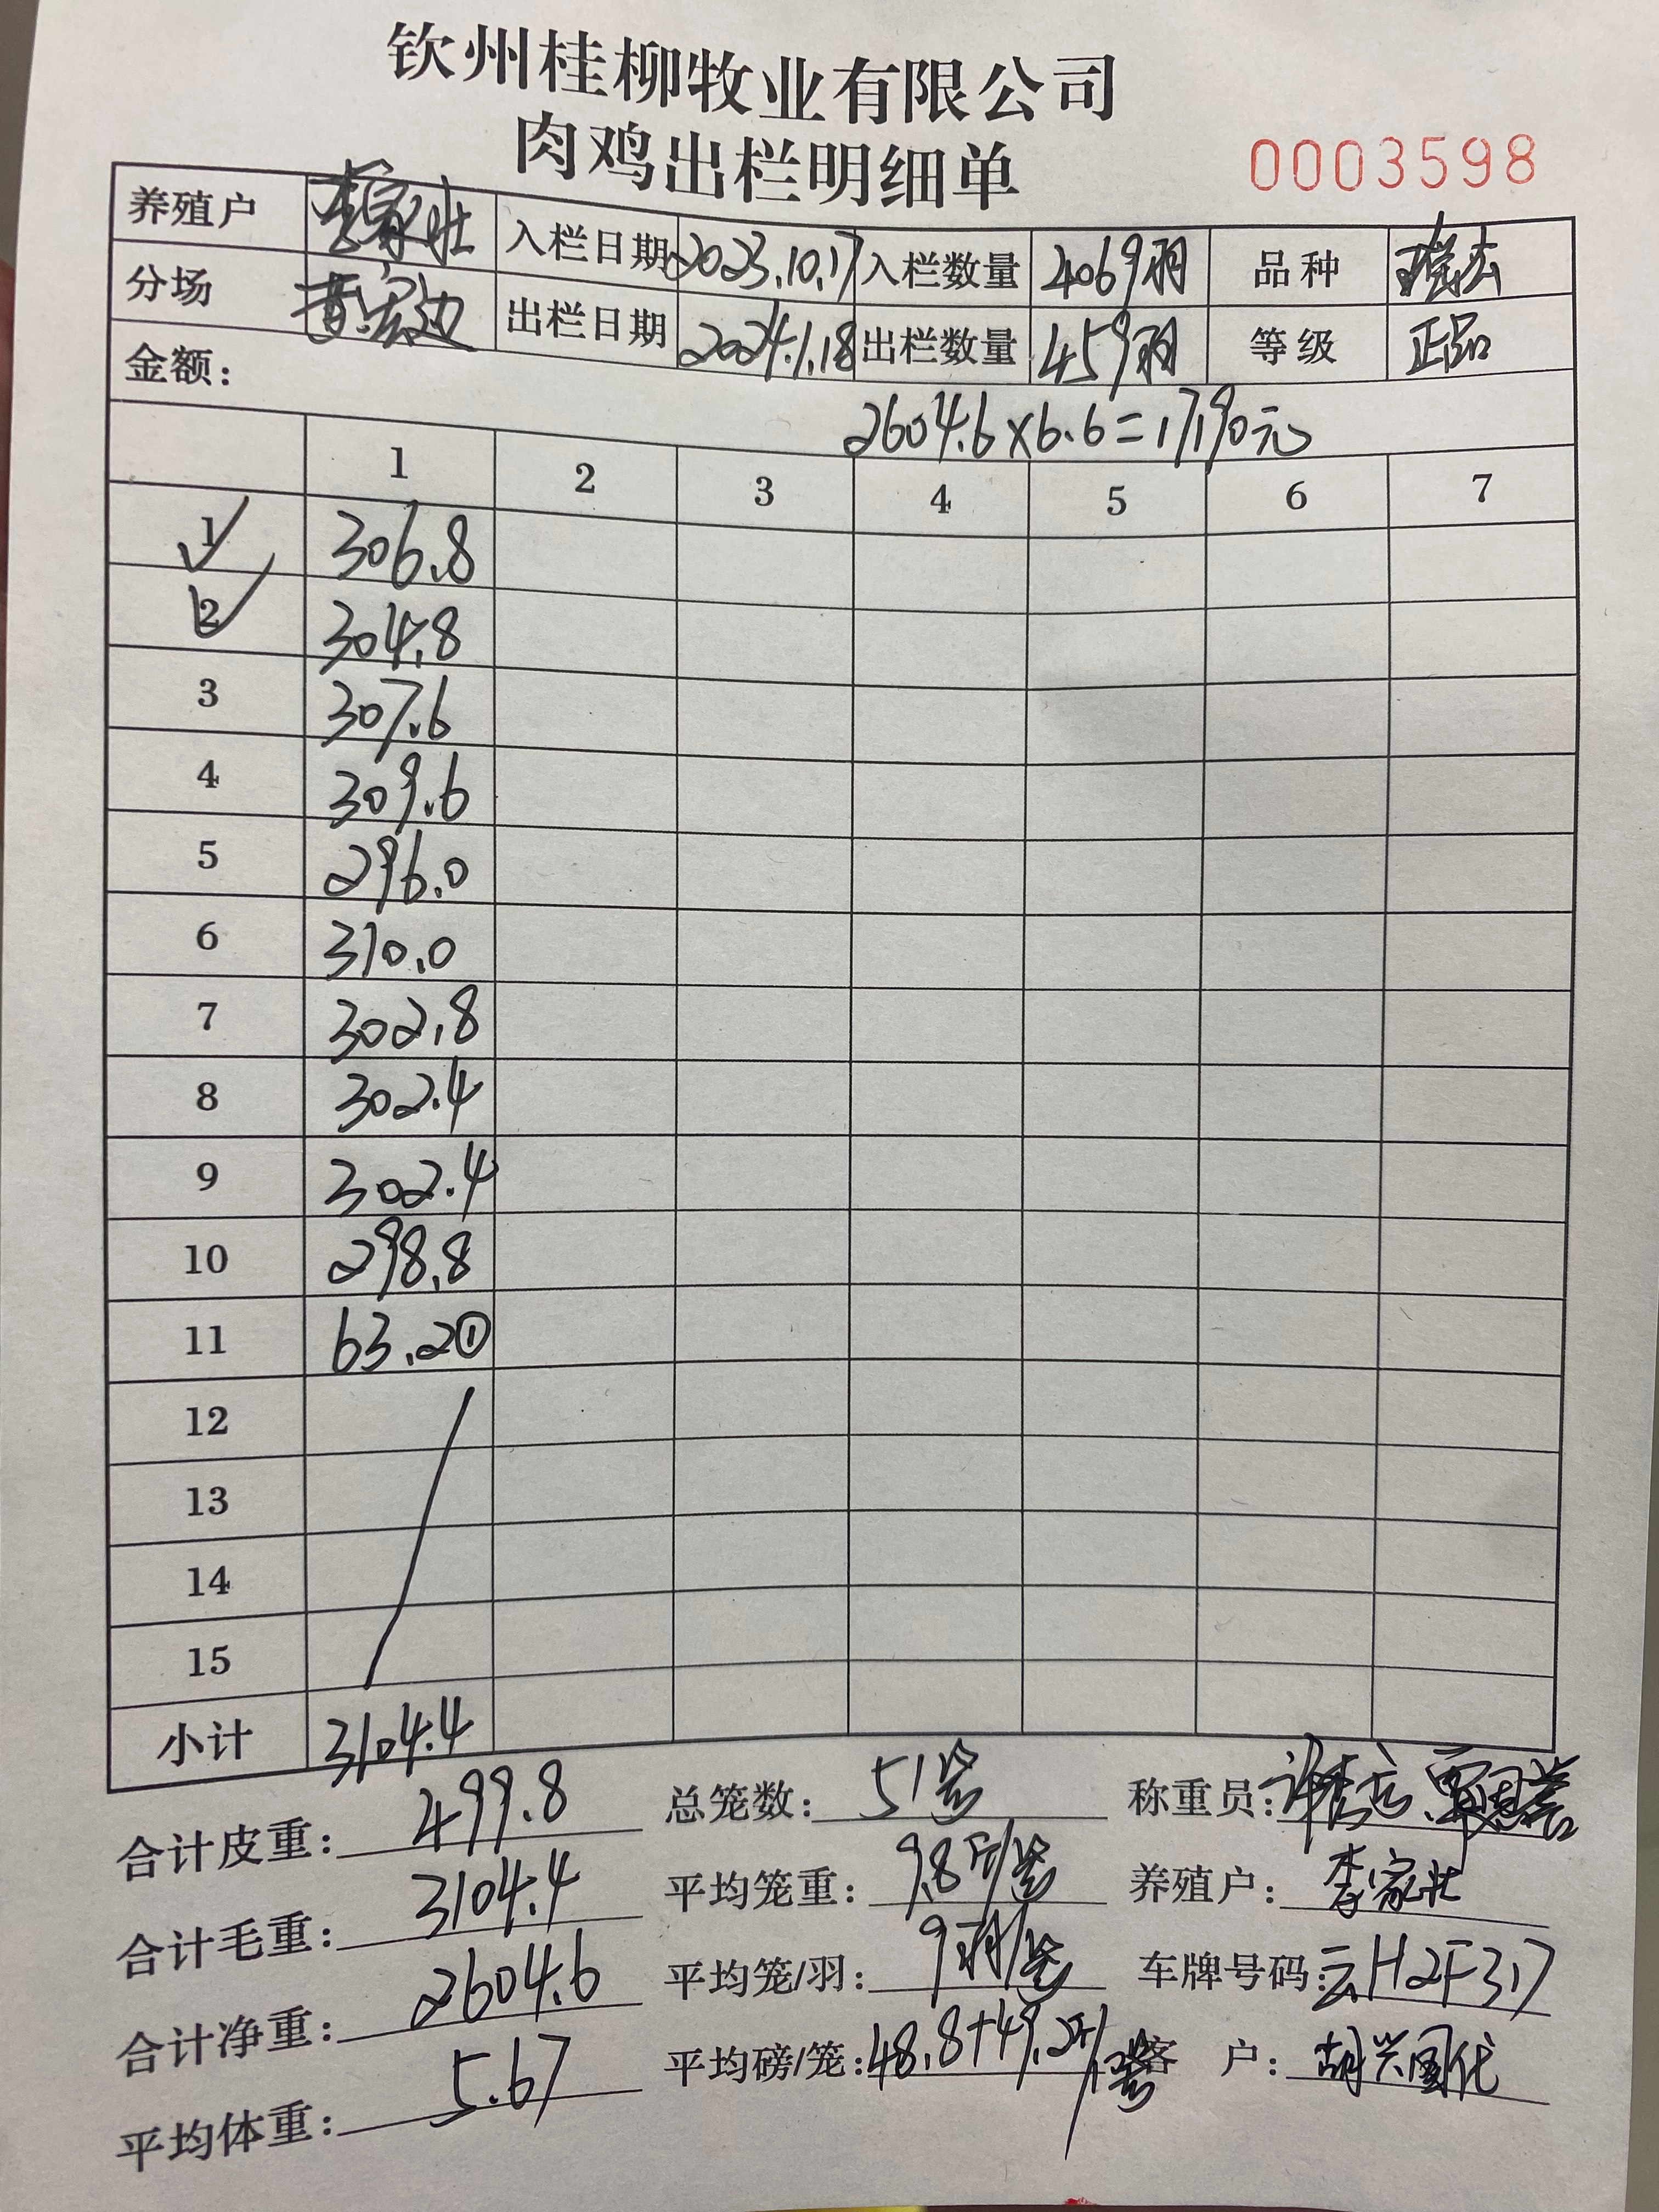 钦州桂柳牧业有限公司
肉鸡出栏明细单
0003598
养殖户 李家壮 入栏日期 2023.10.17 入栏数量 4069羽 品种
分场 出栏日期 2024.1.18 出栏数量 459羽 等级 正品
金额: 2604.6×6.6=17190元
1 2 3 4 5 6 7
1 306.8
2 304.8
3 307.6
4 309.6
5 296.0
6 310.0
7 302.8
8 302.4
9 302.4
10 298.8
11 63.2①
12
13
14
15
小计 3104.4
合计皮重: 499.8 总笼数: 51笼 称重员:
合计毛重: 3104.4 平均笼重: 9.8斤/笼 养殖户: 李家壮
合计净重: 2604.6 平均笼/羽: 9羽/笼 车牌号码: 云H2F317
平均体重: 5.67 平均磅/笼: 48.8+49.2斤/ 客 户: 胡兴国